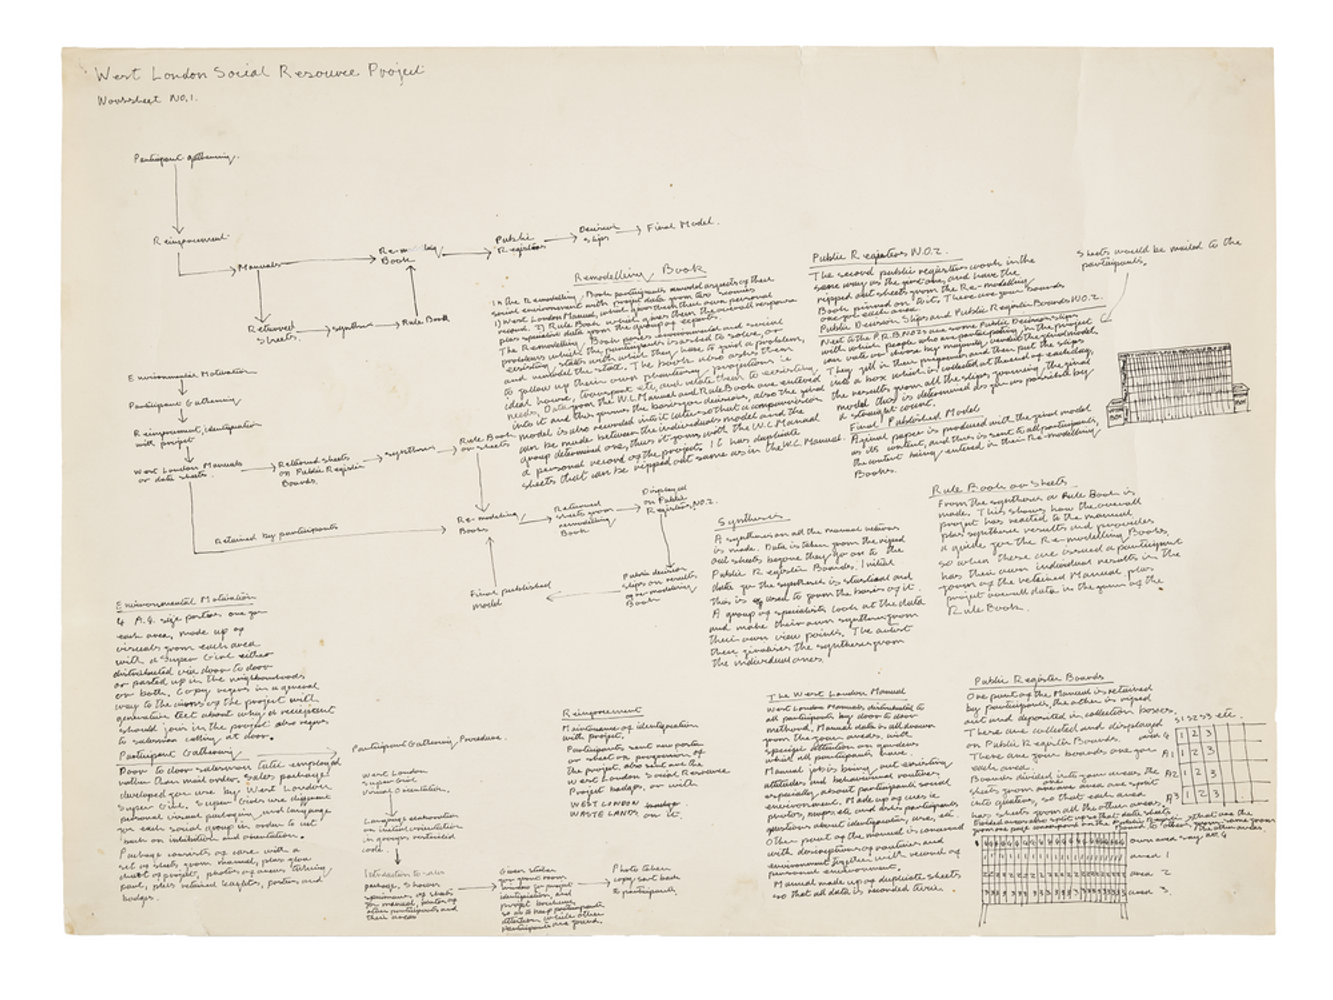 West London Social Resource Project
Worksheet No.1.
Participant gathering.
Reinforcement.
Manuals
Re-modelling
Book
Public
Registers
Decision
slips
Final Model.
Returned
sheets.
synthesis
Rule Book
Environmental Motivation
Participant Gathering
Reinforcement, identification
with project
West London Manuals
or data sheets.
Returned sheets
on Public Register
Boards.
synthesis
Rule Book
or sheets
Retained by participants
Re-modelling
Books
Returned
sheets from
remodelling
Book
Displayed
on Public
Registers No.2.
Public decision
slips on results
of re-modelling
Books
Final published
model
Remodelling Book
In the Remodelling Book participants remodel aspects of their
social environment with project data from two sources
1) West London Manual, which gives them their own personal
record. 2) Rule Book which gives them the overall response
plus specialist data from the group of experts.
The Remodelling Book poses environmental and social
problems which the participant is asked to solve, or
existing states with which they have to find a problem,
and remodel the state. The book also asks them
to follow up their own planetary projections ie
ideal house, transport etc, and relate them to existing
needs. Data from the W.L. Manual and Rule Book are entered
into it and this forms the basis for decisions, also the final
model is also recorded into it later so that a comparison
can be made between the individuals model and the
group determined one, thus it forms with the W.L. Manual
a personal record of the project. It has duplicate
sheets that can be ripped out same as in the W.L. Manual.
Public Registers No.2.
The second public registers work in the
same way as the first one, and have the
ripped out sheets from the Re-modelling
Book pinned on to it. There are four boards
one for each area.
Public Decision Slips and Public Register Boards No.2.
Next to the P.R.B No2s are some Public Decision slips
with which people who are participating in the project
can vote or choose by majority verdict the final model.
They fill in their preferences and then put the slips
into a box which is collected at the end of each day,
the results from all the slips, forming the final
model that is determined as far as possible by
straight count.
Final Published Model
A final paper is produced with the final model
as its content, and this is sent to all participants,
the content being entered in their Re-modelling
Books.
Sheets would be mailed to the
participants.
Rule Book or Sheets
From the synthesis a Rule Book is
made. This shows how the overall
project has reacted to the manual
plus synthesis results and provides
a guide for the Re-modelling Books,
so when these are issued a participant
has their own individual results in the
form of the retained Manual plus
project overall data in the form of the
Rule Book.
Synthesis
A synthesis on all the manual returns
is made. Data is taken from the ripped
out sheets before they go on to the
Public Register Boards. Initial
data for the synthesis is statistical and
this is used to form the basis of it.
A group of specialists look at the data
and make their own synthesis from
their own view points. The artist
then finalises the synthesis from
the individual ones.
Environmental Motivation
4 A.4. size posters one for
each area, made up of
visuals from each area
with a Super Girl either
distributed via door to door
or pasted up in the neighbourhoods
or both. Copy refers in a general
way to the aims of the project with
generative text about why a recipient
should join in the project also refers
to salesman calling at door.
Participant Gathering
Door to door salesman tactic employed
rather than mail order. Sales package
developed for use by West London
Super Girl. Super Girls use different
personal visual packaging, and language
for each social group in order to use
both as inhibition and orientation.
Package consists of case with a
set of sheets from manual, plus glow
chart of project, photos of areas taking
part, plus retained leaflets, posters and
badges.
Participant Gathering Procedure.
West London
Super Girl
Visual Orientation.
Language orientation
an initial orientation
in groups restricted
code.
Introduction to sales
package. Shown
specimens of sheets
for manual, photos of
other participants and
their areas
Given sticker
for front room
window for project
identification, and
project brochure,
so as to keep participants
attention while other
participants are found.
Photo taken
copy sent back
to participants.
Reinforcement
Maintenance of identification
with project.
Participants sent new poster
or sheet on progression of
the project. Also sent are the
West London Social Resource
Project badges, or with
WEST LONDON
WASTE LANDS, on it.
The West London Manual
West London Manuals distributed to
all participants by door to door
method. Manual data is all drawn
from the four areas, with
special attention on gardens
which all participants have.
Manual job is bring out existing
attitudes and behavioural routines,
especially about participants social
environment. Made up of cues ie
photos, maps, etc and asks participants
questions about identification, use, etc.
Other part of the manual is concerned
with descriptions of routines and
environment together with record of
personal environment.
Manual made up of duplicate sheets
so that all data is recorded twice.
Public Register Boards
One part of the Manual is retained
by participants, the other is ripped
out and deposited in collection boxes.
These are collected and displayed
on Public Register Boards.
There are four boards one for
each area.
Boards divided into four areas, the
sheets from one area are split
into quarters, so that each area
has sheets from all the other areas.
S1 S2 S3 etc.
area 4 1 2 3
A1 1 2 3
A2 1 2 3
A3 1 2 3
own area say AR 4
area 1
area 2
area 3.